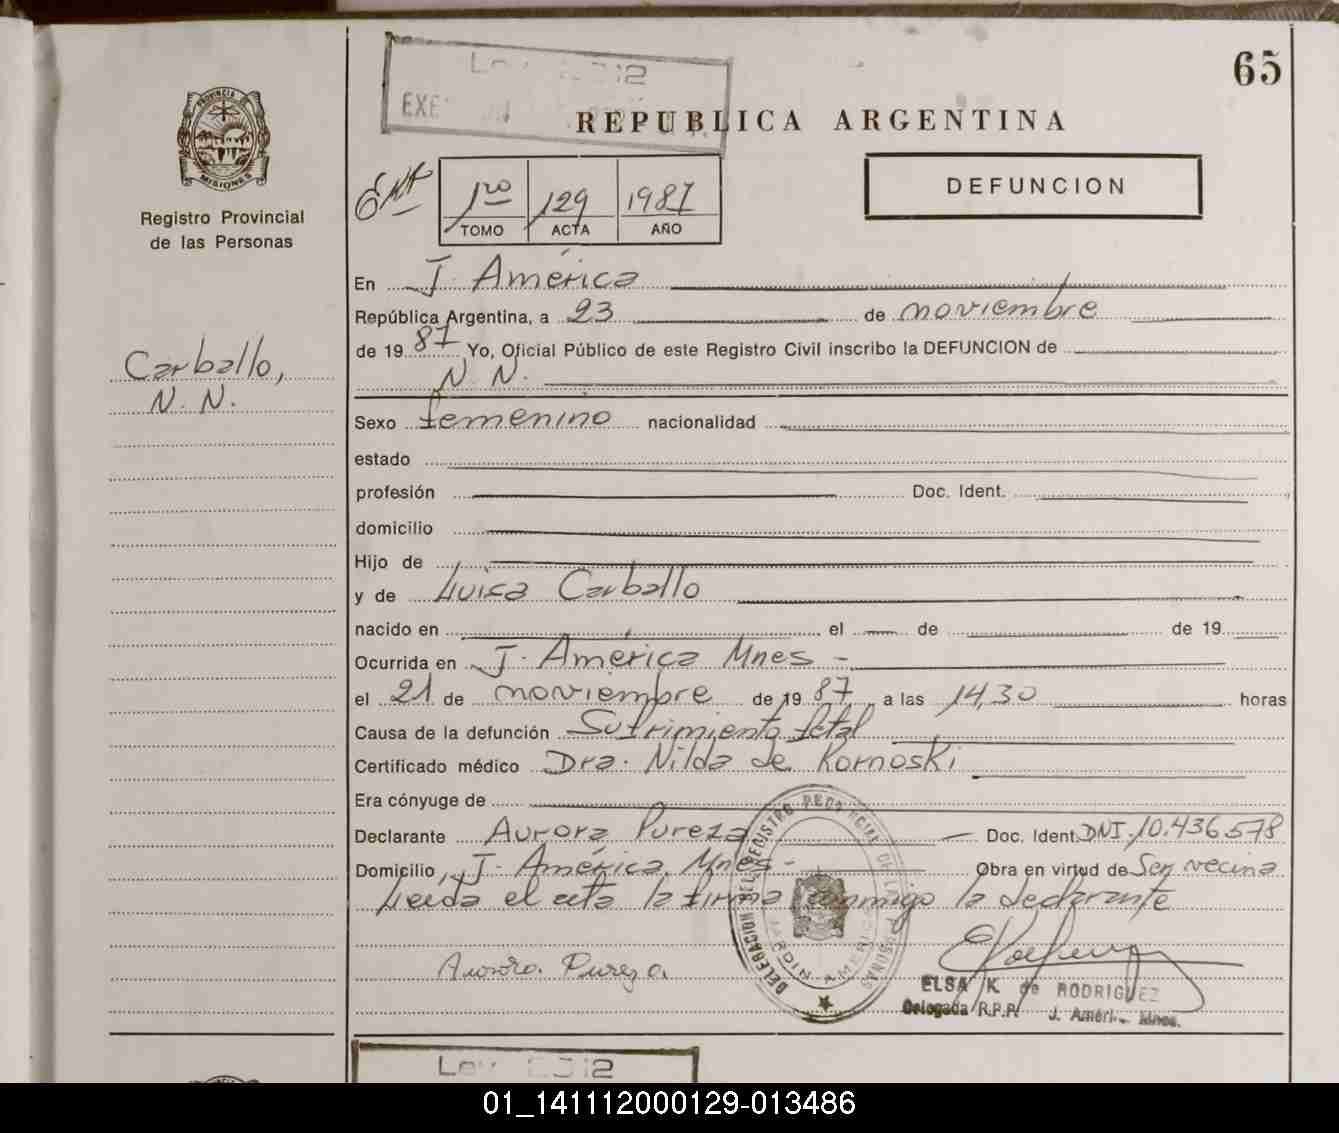 65
Ley 2012
EXE
REPUBLICA ARGENTINA
PROVINCIA DE
MISIONES
Registro Provincial
de las Personas
DEFUNCION
1ro 129 1987
TOMO ACTA AÑO
En J. América
República Argentina, a 23 de noviembre
de 1987 Yo, Oficial Público de este Registro Civil inscribo la DEFUNCION de
N. N.
Carballo,
N. N.
Sexo femenino nacionalidad
estado
profesión Doc. Ident.
domicilio
Hijo de
y de Luisa Carballo
nacido en el de de 19
Ocurrida en J. América Mnes -
el 21 de noviembre de 1987 a las 14,30 horas
Causa de la defunción Sufrimiento fetal
Certificado médico Dra. Nilda de Kornoski
Era cónyuge de
Declarante Aurora Pureza Doc. Ident. DNI. 10.436.578
Domicilio, J. América Mnes - Obra en virtud de Ser vecina
Leida el acta la firma conmigo la declarante
Aurora Pureza.
DELEGACION DEL REGISTRO PROVINCIAL DE LAS PERSONAS
JARDIN AMERICA
ELSA K. de RODRIGUEZ
Delegada R.P.P. J. Améri Mnes.
Ley 2012
01_141112000129-013486